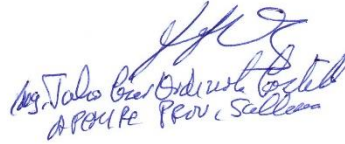 Ing. Julio César Ordinola Castillo
APEMIPE PROV. Sullana